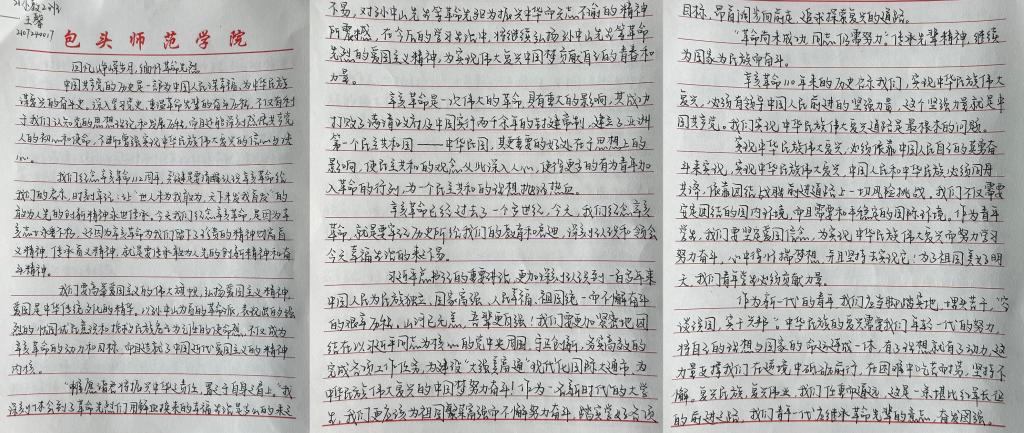 21小教2班
王馨
2107240017
包头师范学院
回忆峥嵘岁月，缅怀革命先烈
中国共产党的历史是一部为中国人民谋幸福、为中华民族
谋复兴的奋斗史。深入学习党史、重温革命先辈的奋斗历程，不仅有利
于我们认知党的思想理论和发展历程，而且还能深刻感悟共产党
人的初心和使命，不断增强实现中华民族伟大复兴的信心与决
心。
我们纪念辛亥革命110周年，关键是要清醒认识辛亥革命给
我们的启示，时刻牢记，让“世人未为我敢为，天下未发我首发”的
敢为人先的创新精神永世传承。今天我们纪念辛亥革命，是因为辛
亥志士永垂不朽，还因为辛亥革命为我们留下了珍贵的精神财富首
义精神。传承首义精神，就是要传承敢为人先的创新精神和奋
斗精神。
我们要高举爱国主义的伟大旗帜，弘扬爱国主义精神。
爱国是中华传统文化的精华。以孙中山为首的革命派，表现出的强
烈的忧国忧民意识和振兴民族居为为己任的使命感，不仅成为
辛亥革命的动力和目标，而且造就了中国近代爱国主义的精神
内核。
“惟愿诸君将振兴中华之责任，置之于自身之肩上。”我
深刻体会到了革命先烈们用鲜血换来的幸福生活是多么的来之
不易，对孙中山先生等革命先驱为振兴中华矢志不渝的精神
所震撼。在今后的学习生活中，将继续弘扬孙中山先生等革命
先烈的爱国主义精神，为实现伟大复兴中国梦贡献自己的青春和
力量。
辛亥革命是一次伟大的革命，具有重大的影响，其成功
打败了满清政府及中国实行两千余年的封建帝制，建立了亚洲
第一个民主共和国——中华民国，其更重要的好处在于思想上的
影响，使民主共和的观念从此深入人心，使得更多的有为青年加
入革命的行列，为一个民主共和的理想抛洒热血。
辛亥革命已经过去了一个多世纪，今天，我们纪念辛亥
革命，就是要牢记历史所给我们的教育和启迪，深刻认识和领会
今天幸福生活的来之易。
习近平总书记的重要讲话，更加深刻认识到一百多年来
中国人民为民族独立、国家富强、人民幸福、祖国统一而不懈奋斗
的艰辛历程。山河已无恙，吾辈更自强！我们需更加紧密地团
结在以习近平同志为核心的党中央周围，守正创新，务实高效的
完成各项工作任务，为建设“大强美富通”现代化国际大通市，为
中华民族伟大复兴的中国梦努力奋斗！作为一名新时代的大学
生，我们更应该为祖国繁荣富强而不懈努力奋斗，踏实学好各项
目标，昂首阔步向前走，追求探索复兴的道路。
“革命尚未成功，同志仍需努力”传承先辈精神，继续
为国家为民族而奋斗。
辛亥革命110年来的历史启示我们，实现中华民族伟大
复兴，必须有领导中国人民前进的坚强力量，这个坚强力量就是中
国共产党。我们实现中华民族伟大复兴道路是最根本的问题。
实现中华民族伟大复兴，必须依靠中国人民自己的英勇奋
斗来实现，实现中华民族伟大复兴，中国人民和中华民族必须同舟
共济，依靠团结战胜前进道路上一切风险挑战。我们不仅需要
安定团结的国内环境，而且需要和平稳定的国际环境。作为青年
学生，我们要坚定爱国信念，为实现中华民族伟大复兴而努力学习
努力奋斗，心中得时揣梦想，并且坚持去实现它；为了祖国美好明
天，我们青年学生必须有贡献力量。
作为新一代的青年，我们应当脚踏实地，埋头苦干，“空
谈误国，实干兴邦”。中华民族的复兴需要我们年轻一代的努力，
将自己的理想与国家的命运连成一体，有了理想就有了动力，这
力量支撑我们在逆境中破动前行，在困难中吃苦耐劳，坚持不
懈。复兴民族，复兴伟业，我们任重而道远，这是一条堪比红军长征
的前进之路，我们青年一代在继承革命先辈的意志，奋发图强。